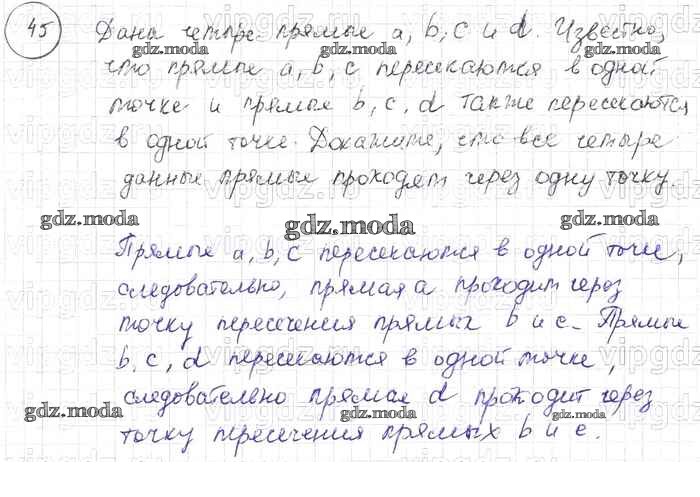 45 Дана четыре прямые a, b, c и d. Известно,
что прямые a, b, c пересекаются в одной
точке и прямые b, c, d также пересекаются
в одной точке. Докажите, что все четыре
данные прямые проходят через одну точку.
Прямые a, b, c пересекаются в одной точке,
следовательно, прямая a проходит через
точку пересечения прямых b и c. Прямые
b, c, d пересекаются в одной точке,
следовательно прямая d проходит через
точку пересечения прямых b и c.
gdz.moda
vipgdz